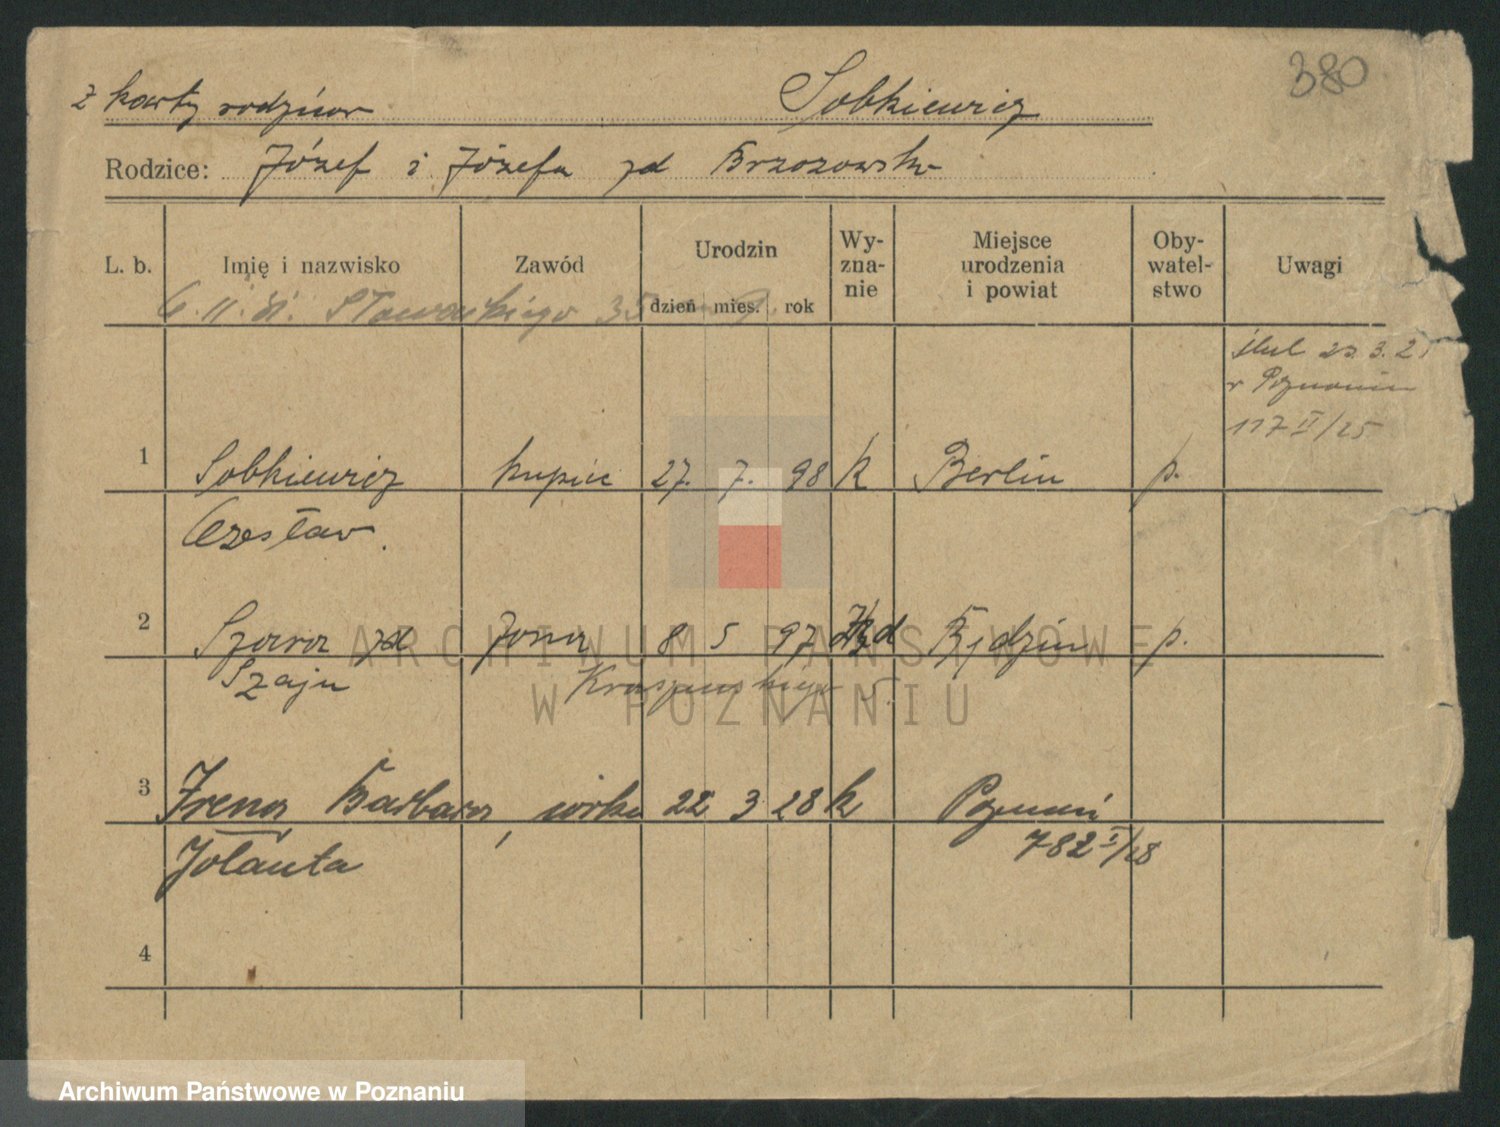 380
z karty rodziców Sobkiewicz
Rodzice: Józef i Józefa zd Brzozowska
L. b. Imię i nazwisko Zawód Urodzin dzień mies. rok Wy-zna-nie Miejsce urodzenia i powiat Oby-watel-stwo Uwagi
Słowackiego 35
ślub 23.3.25
w Poznaniu
117 II/25
1 Sobkiewicz kupiec 27. 7. 98 k Berlin p.
Czesław.
2 Szara zd żona 8 5 97 Będzin p.
Szajn Kraszewskiego 5.
3 Irena Barbara, córka 22 3 28 k Poznań
Jolanta 782 I/28
4
ARCHIWUM PAŃSTWOWE
W POZNANIU
Archiwum Państwowe w Poznaniu